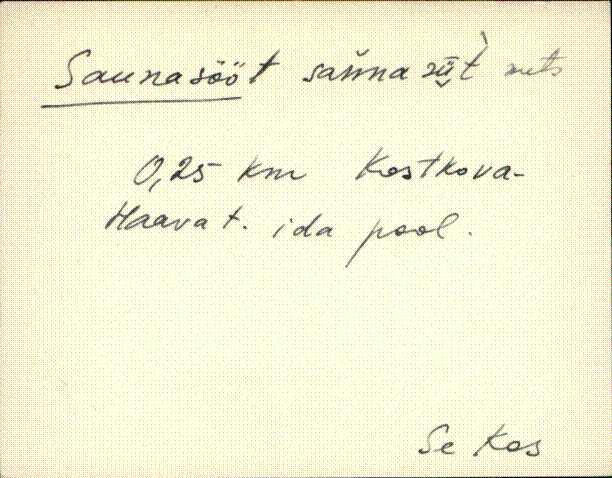 Saunasööt sau̬nasüüt̀ mets
0,25 km Kostkova-
Haava t. ida pool.
Se Kos